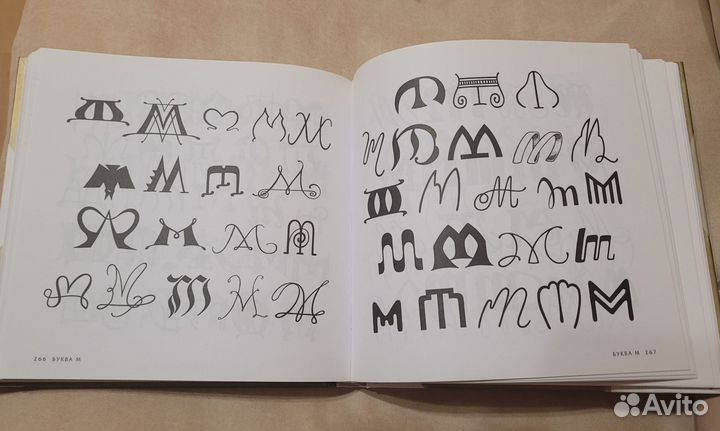 М М М М М
М М М М
М М М М
М М М М М
266 БУКВА М
М М М
М М М М М
М М М М М
М М М М
М М М М М
БУКВА М 267
Avito